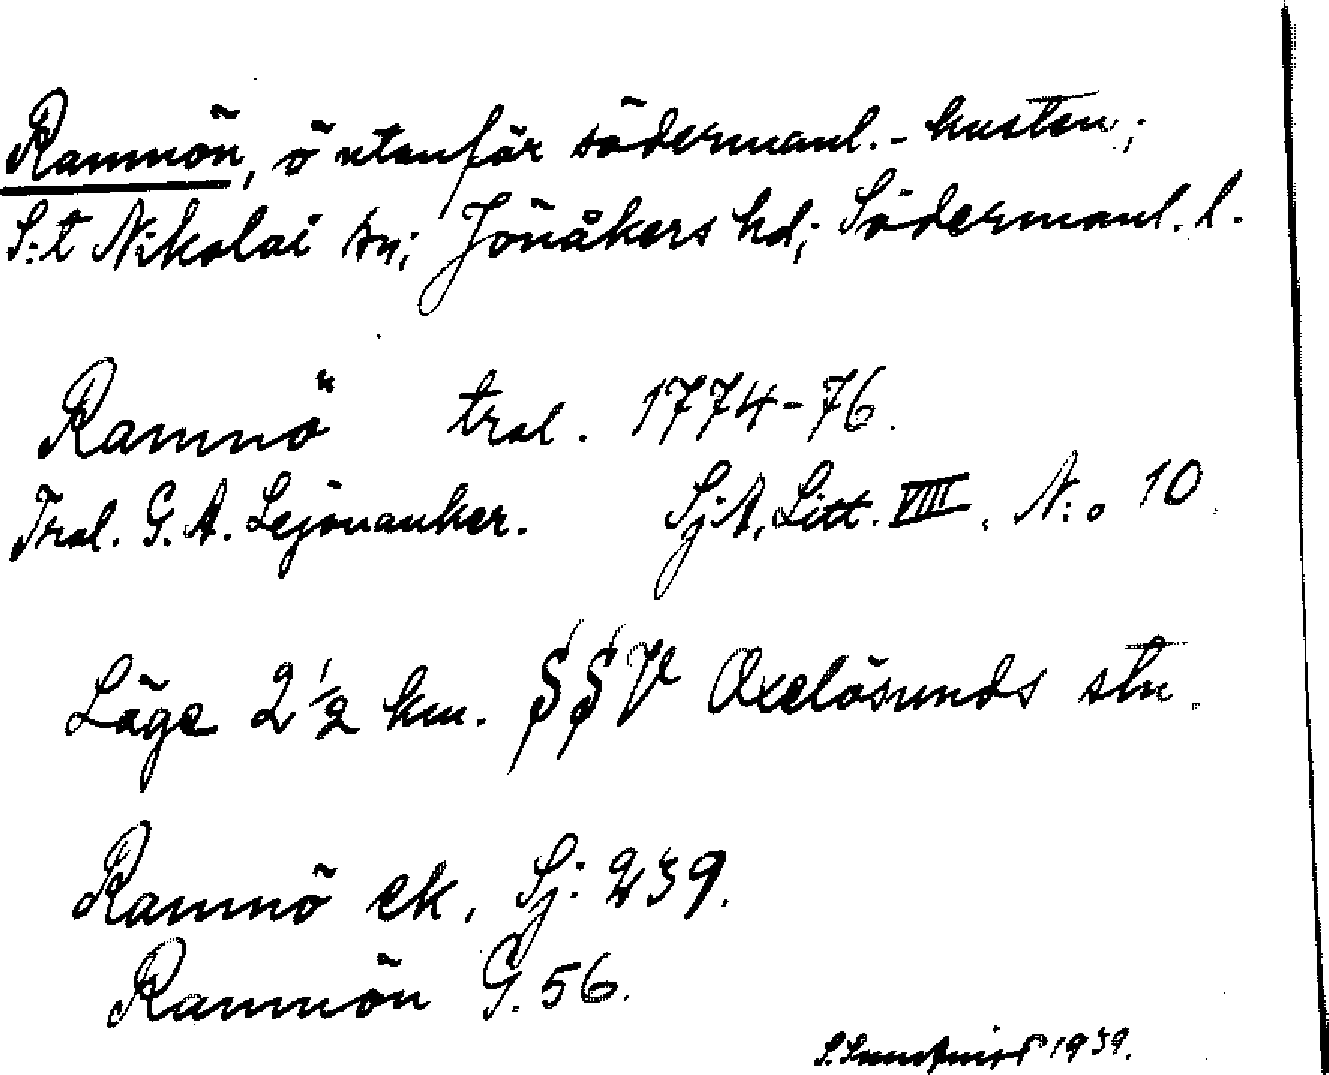 Ramnön, ö utanför södermanl.-kusten;
S:t Nikolai sn; Jönåkers hd; Södermanl. l.
Ramnö tral. 1774-76.
Tral. G. A. Lejonanker. Sj.A. Litt. VIII. N:o 10
Läge 2 1/2 km. SSV Oxelösunds stn.
Ramnö ek. Sj: 239.
Ramnön G. 56.
1939.